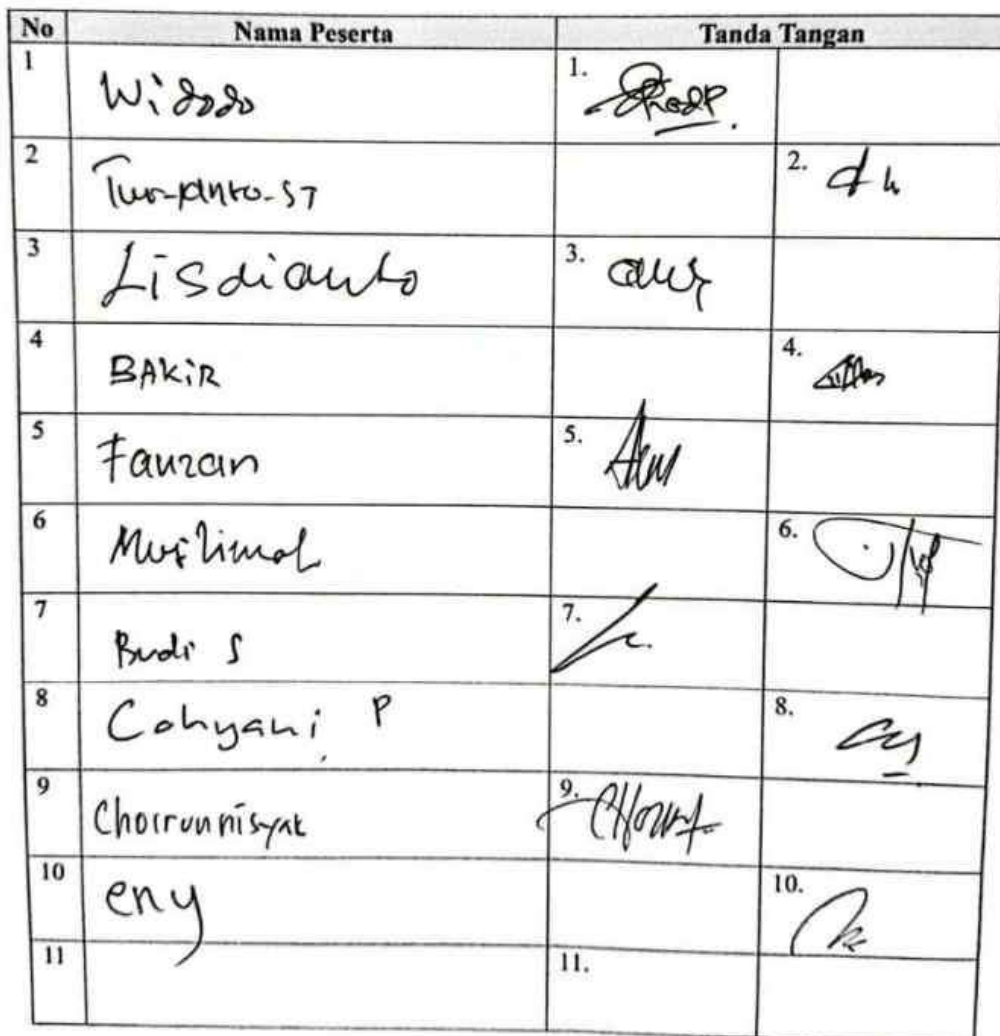 No Nama Peserta Tanda Tangan
1 Widodo 1.
2 2.
3 Lisdianto 3.
4 BAKiR 4.
5 Fauzan 5.
6 Muslimah 6.
7 Budi S 7.
8 Cahyani P 8.
9 Choirunnisyak 9.
10 eny 10.
11 11.